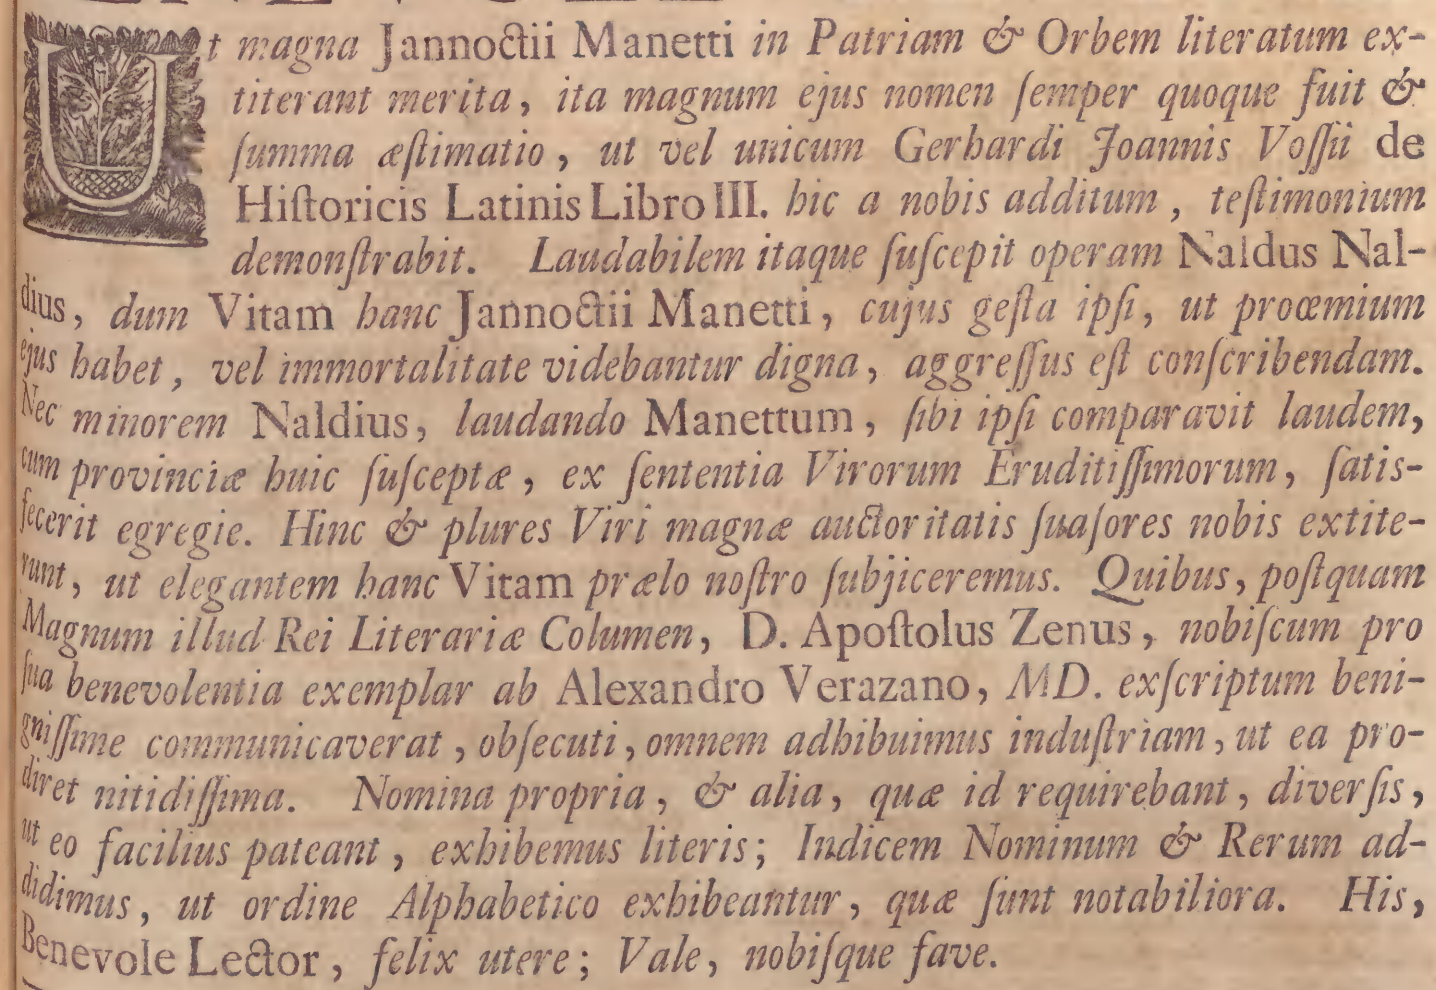 Ut magna Jannoctii Manetti in Patriam & Orbem literatum ex-
titerant merita, ita magnum ejus nomen ſemper quoque fuit &
ſumma æſtimatio, ut vel unicum Gerhardi Joannis Voſſii de
Hiſtoricis Latinis Libro III. hic a nobis additum, teſtimonium
demonſtrabit. Laudabilem itaque ſuſcepit operam Naldus Nal-
dius, dum Vitam hanc Jannoctii Manetti, cujus geſta ipſi, ut proœmium
ejus habet, vel immortalitate videbantur digna, aggreſſus eſt conſcribendam.
Nec minorem Naldius, laudando Manettum, ſibi ipſi comparavit laudem,
cum provinciæ huic ſuſceptæ, ex ſententia Virorum Eruditiſſimorum, ſatis-
fecerit egregie. Hinc & plures Viri magnæ auctoritatis ſuaſores nobis extite-
runt, ut elegantem hanc Vitam prælo noſtro ſubjiceremus. Quibus, poſtquam
Magnum illud Rei Literariæ Columen, D. Apoſtolus Zenus, nobiſcum pro
ſua benevolentia exemplar ab Alexandro Verazano, MD. exſcriptum beni-
gniſſime communicaverat, obſecuti, omnem adhibuimus induſtriam, ut ea pro-
diret nitidiſſima. Nomina propria, & alia, quæ id requirebant, diverſis,
ut eo facilius pateant, exhibemus literis; Indicem Nominum & Rerum ad-
didimus, ut ordine Alphabetico exhibeantur, quæ ſunt notabiliora. His,
Benevole Lector, felix utere; Vale, nobiſque fave.